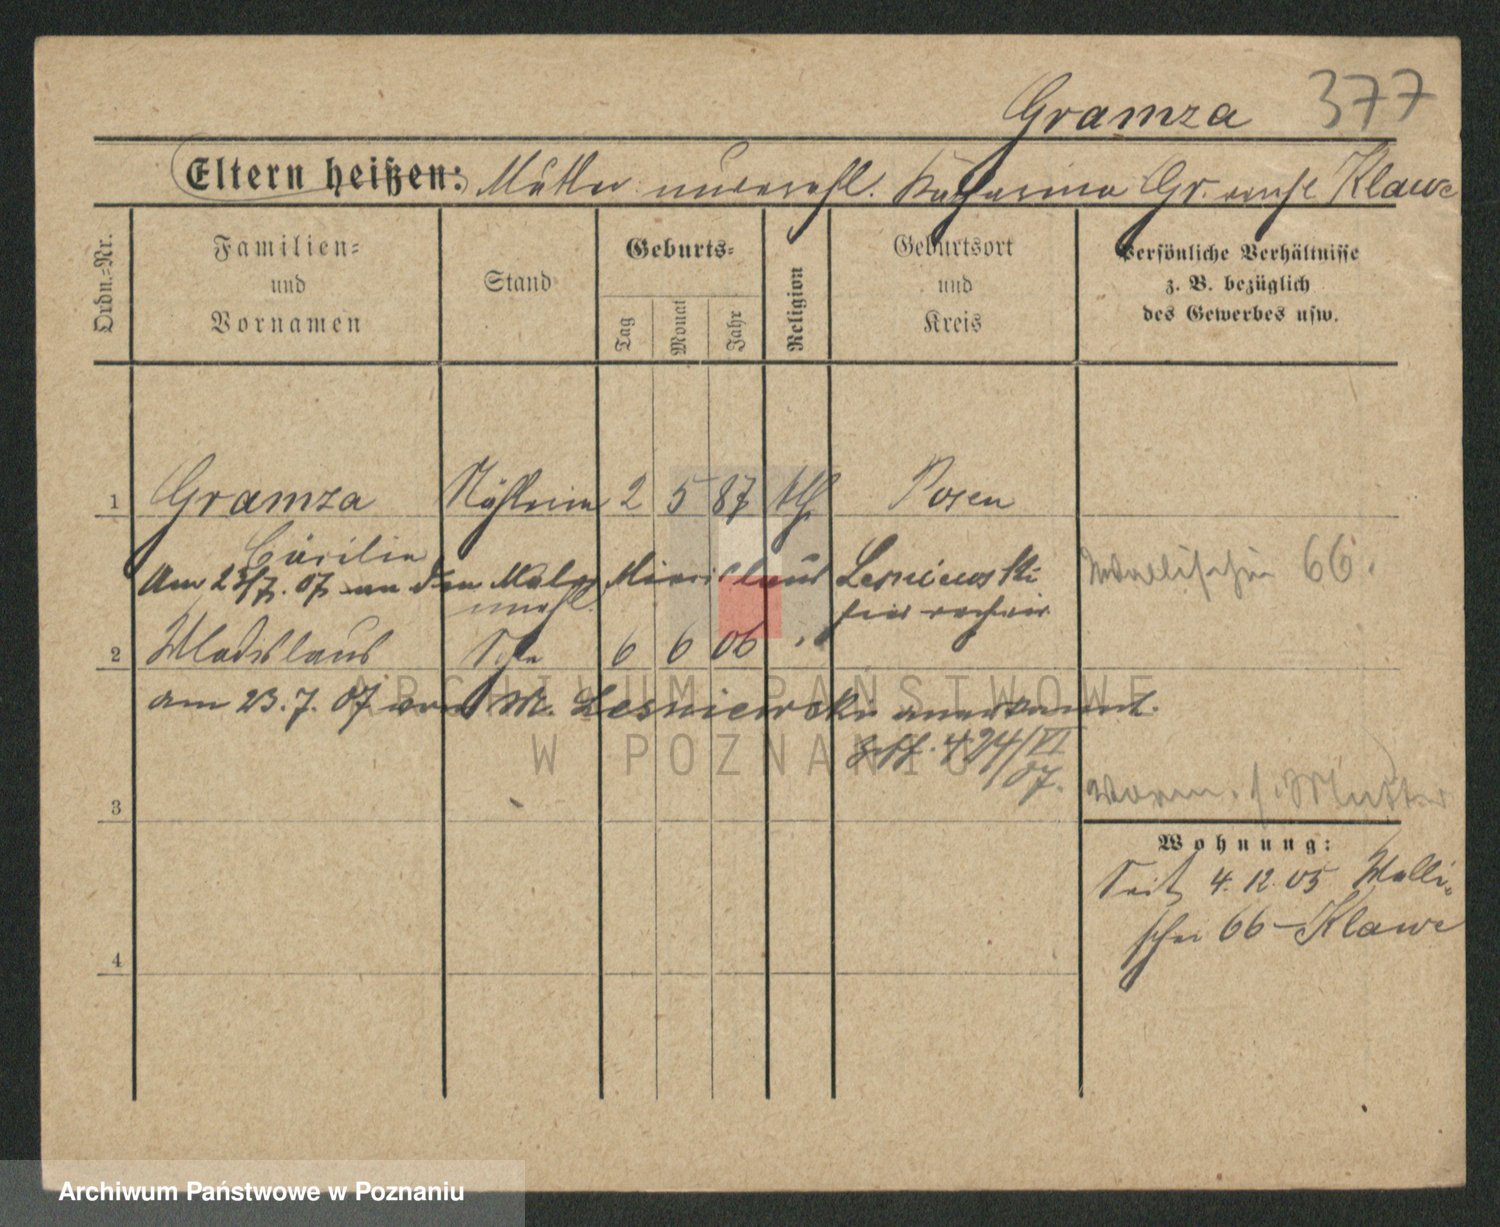 Gramza 377
Eltern heißen: Mutter unverehl. Katharina Gr. Klawe
Ordn.-Nr.
Familien-
und
Vornamen
Stand
Geburts-
Tag
Monat
Jahr
Religion
Geburtsort
und
Kreis
Persönliche Verhältnisse
z. B. bezüglich
des Gewerbes usw.
1 Gramza Näherin 2 5 87 kth Posen
Cäcilia
Am 23/7. 07 an den Maler Miecislaus Lesniewski
unehl. hier
Wallischei 66.
2 Wladislaus Sohn 6 6 06 "
am 23. 7. 07 von M. Lesniewski anerkannt.
424/VI
07.
3 Mutter
Wohnung:
Seit 4. 12. 05 Walli-
schei 66 - Klawe
4
ARCHIWUM PAŃSTWOWE
W POZNANIU
Archiwum Państwowe w Poznaniu